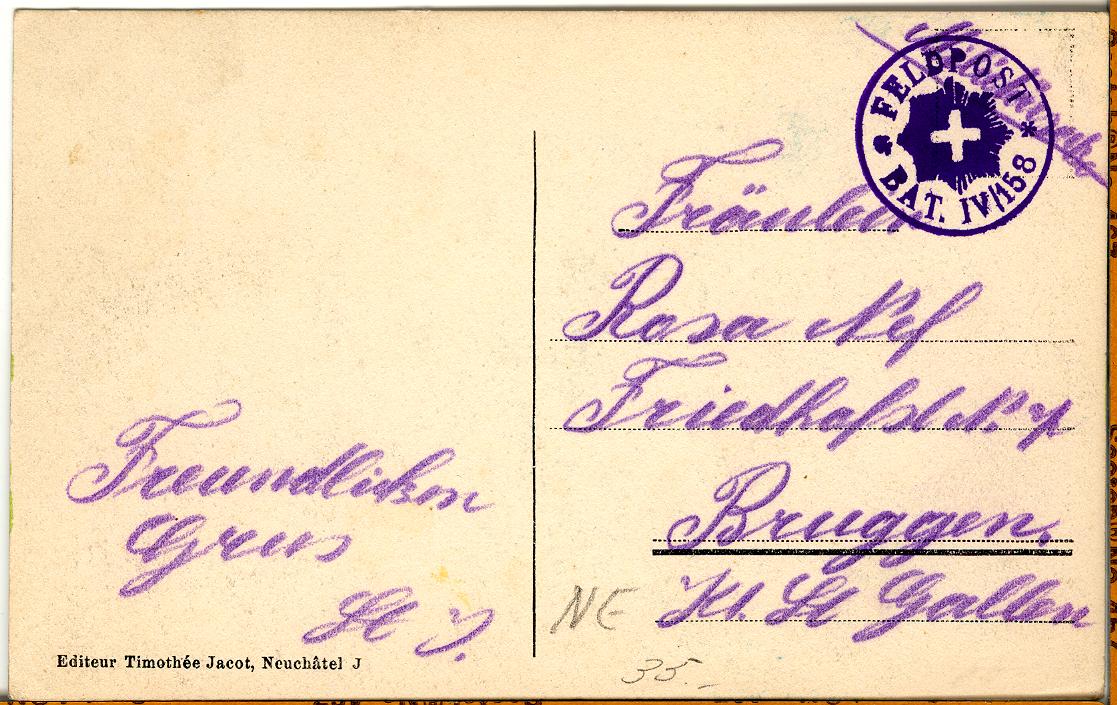 FELDPOST
BAT. IV/158
Fräulein
Rosa Nef
Friedhofst N.
Bruggen.
Kt. St Gallen
Freundlichen
Gruss
Editeur Timothée Jacot, Neuchâtel J
NE
35.-